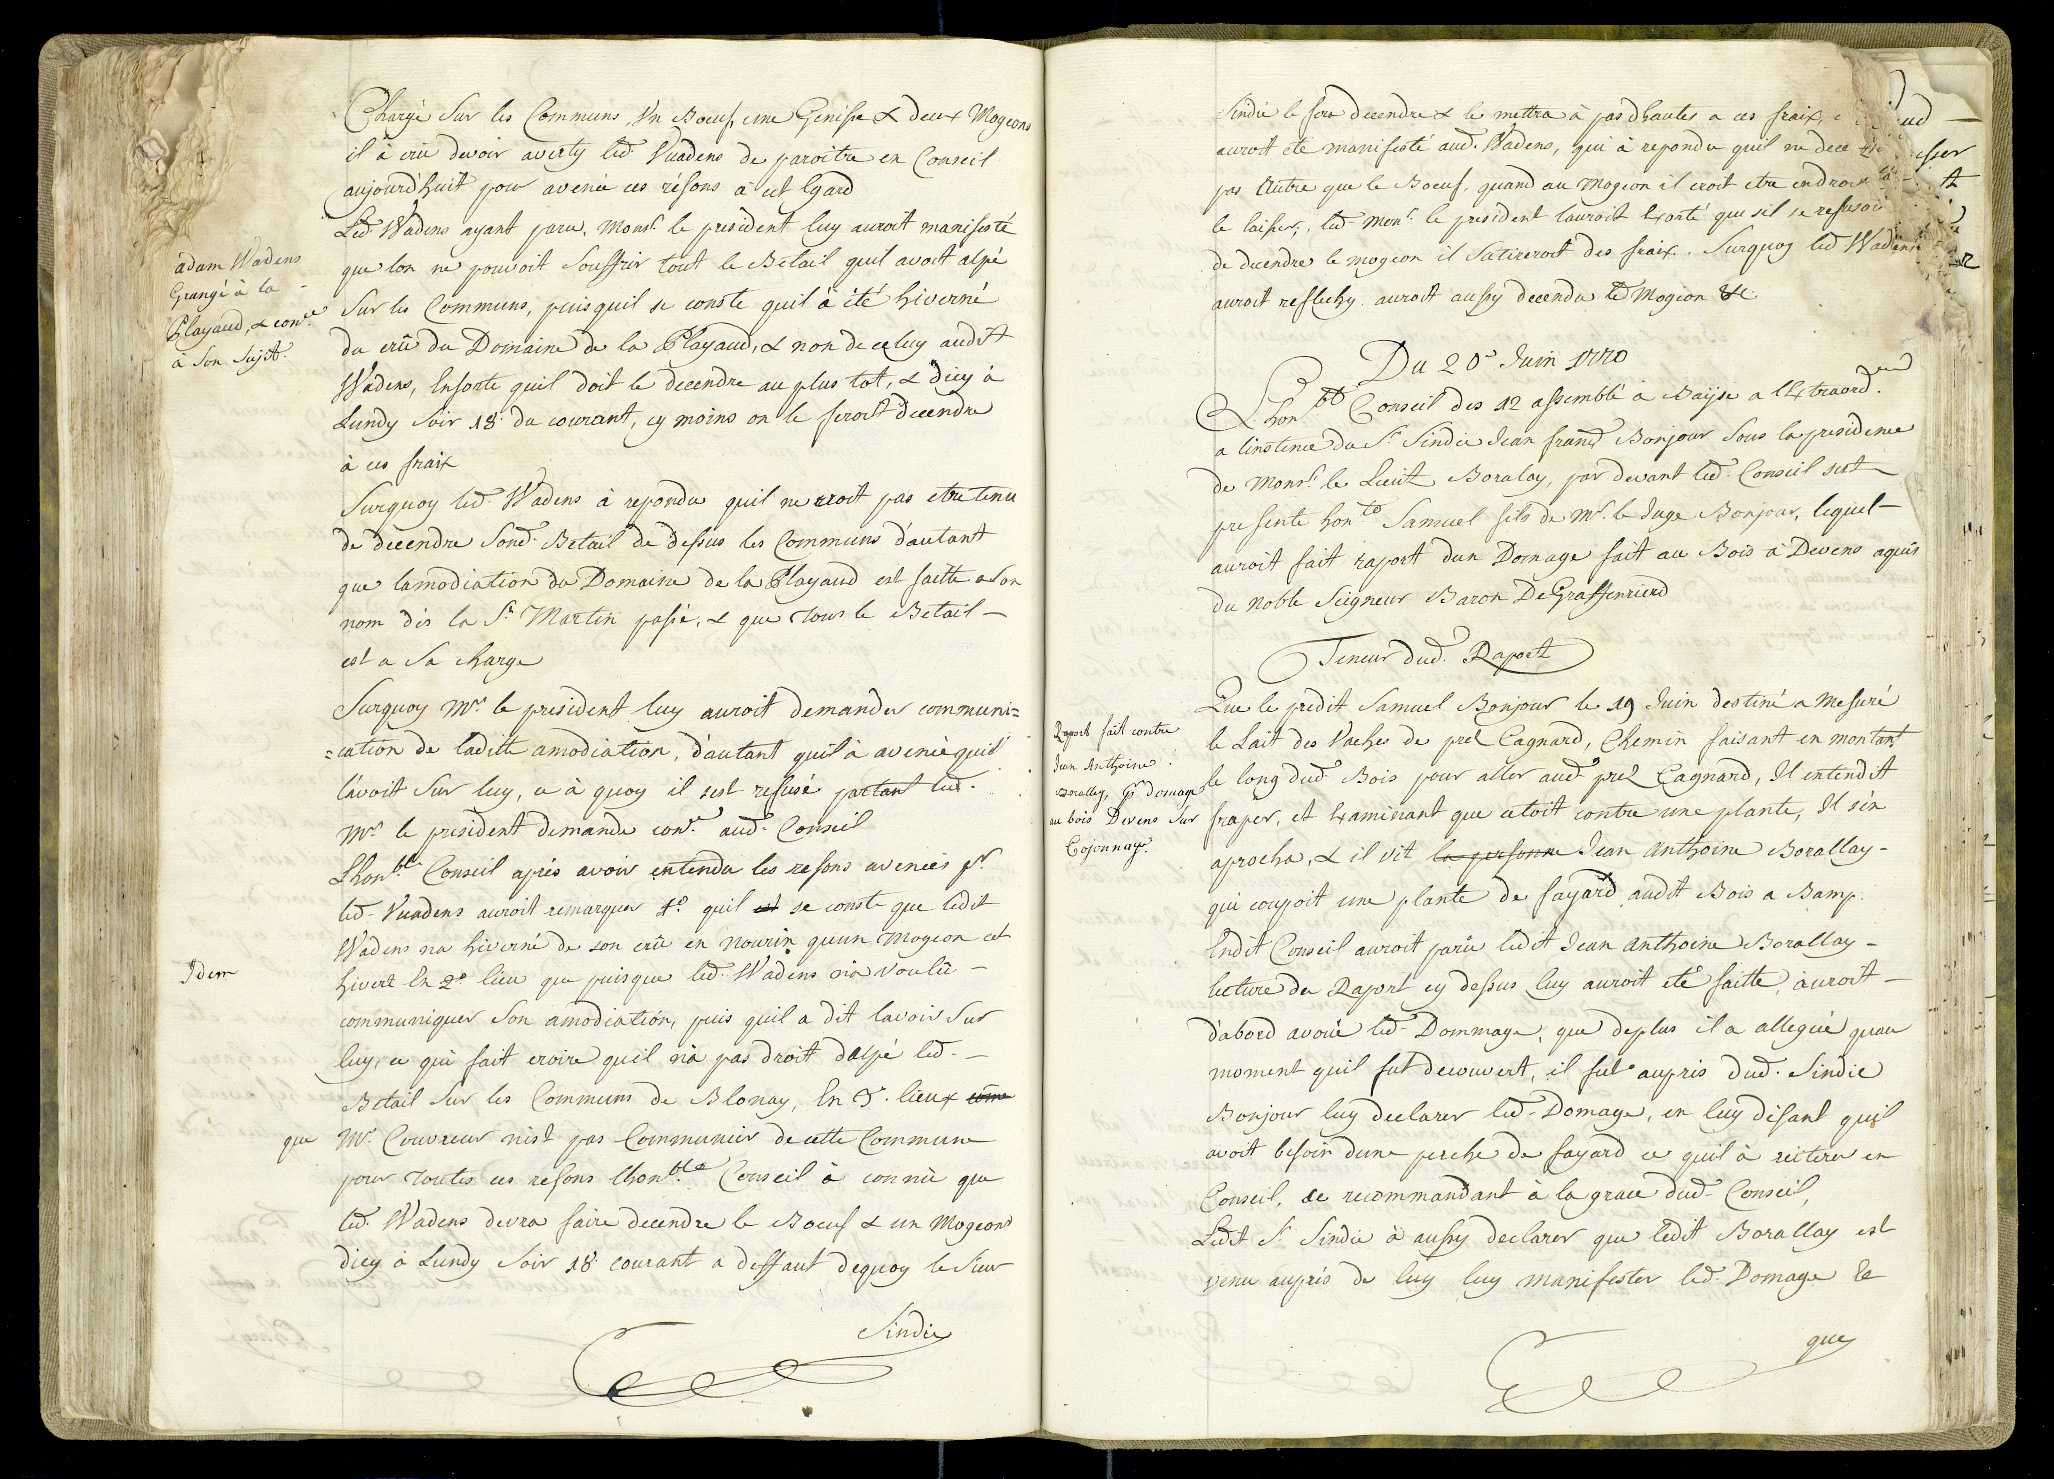 Chargé Sur les Communs, Vn Boeuf, une Genisse & deux Mogeons
il à crû devoir averty led. Vuadens de paroitre en Conseil
aujourd'huit pour avenée ces résons à cet Egard
Led. Wadens ayant paru, Monsr. le president luy auroit manifesté
adam Wadens
Grangé à la
Playaud, & con.ce
à Son Sujet.
que lon ne pouvoit Souffrir tout le Betail quil avoit alpé
Sur les Communs, puisquil se conste quil à été hiverné
du crû du Domaine de la Playaud, & non de celuy audit
Wadens, Ensorte quil doit le decendre au plus tot, & dicy à
Lundy Soir 18e du courant, cy moins on le feroit decendre
à ces fraix
Surquoy led. Wadens à repondu quil ne croit pas etre tenu
de décendre Sond. Betail de dessus les Communs d'autant
que lamodiation du Domaine de la Playaud est faitte a Son
nom dés la St. Martin passé, & que tous le Betail –
est a Sa charge
Surquoy Mr. le president luy auroit demander communi=
=cation de laditte amodiation, d'autant quil à avenée quil
l'avoit Sur luy, ce à quoy il s'est refusé partant led.
Mr. le president demande con.ce aud. Conseil
L'hon.ble Conseil aprés avoir entendu les resons avenées pr.
led. Vuadens auroit remarquer 1o. quil est se conste que ledit
Wadens na hiverné de son crû en nourin quun Mogeon cet
Idem
hivert En 2e. lieu que puisque led. Wadens n'a voulû –
communiquer Son amodiation, puis quil a dit lavoir Sur
luy, ce qui fait croire quil n'a pas droit d'alpé led. –
Betail Sur les Communs de Blonay, En 3e. lieux come
que Mr. Couvreur n'est pas Communier de cette Commune
pour toutes ces resons lhon.ble Conseil à connû que
led. Wadens devra faire decendre le Boeuf & un Mogeons
dicy à Lundy Soir 18e courant a deffaut dequoy le Sieur
Sindic
Sindic le fera decendre & le mettra à pas dhautes a ces fraix,
auroit eté manifesté aud. Wadens, qui à repondu quil ne dece
pas Autre que le Boeuf, quand au Mogeon il croit etre en droit
le laisser, led. Monsr. le president lauroit Exorté que sil se refusoi
de decendre le mogeon il Satireroit des fraix. Surquoy led Wadens
auroit reflechy auroit aussy decendu led Mogeon &c
Du 20e Juin 1770
L'hon.ble Conseil des 12 assemblé à Baÿse a l'Extraord.re
a l'instence du Sr. Sindic Jean franç Bonjour Sous la presidence
de Monsr. le Lieut Boralay, par devant led. Conseil sest
presente hon.te Samuel fils de Mr. le Juge Bonjour, lequel –
auroit fait raport dun Domage fait au Bois à Devens aquis
du Noble Seigneur Baron De Graffenrierd
Teneur dud. Raport
Que le predit Samuel Bonjour le 19 Juin destiné a Mesuré
Raport fait contre
Jean Anthoine
Boralley, pr domage
au bois Devens Sur
Cojonnay.
le Lait des Vaches de prel Cagnard, Chemin faisant en montant
le long dud. Bois pour aller aud. prel Cagnard, Il entendit
fraper, et Examinant que cetoit contre une plante, Il s'én
aprocha, & il vit la personne Jean Anthoine Borallay –
qui coupoit une plante de fayard audit Bois a Bamp.
Endit Conseil auroit parû ledit Jean Anthoine Borallay –
lecture du Raport cy dessus luy auroit eté faitte, auroit –
d'abord avoué led. Dommage, que deplus il a allegué quau
moment quil fut decouvert, il fut aupris dud. Sindic
Bonjour luy declarer led. Domage, en luy disant quil
avoit besoin dune perche de fayard ce quil à reiterer en
Conseil, se recommandant à la grace dud. Conseil,
Ledit Sr. Sindic à aussy declarer que ledit Borallay est
venu aupris de luy luy manifester led. Domage &
que